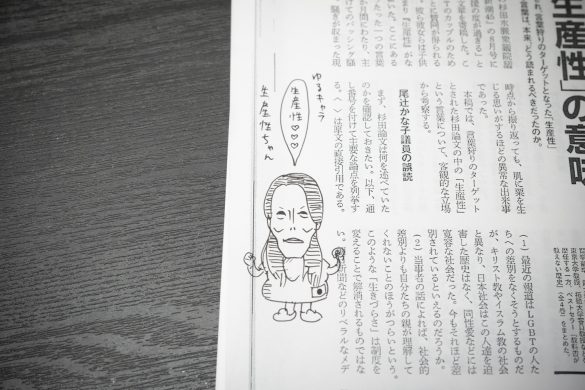 生産性」の意味
れ、言葉狩りのターゲットとなった「生産性」
言葉は、本来、どう読まれるべきだったのか。
杉田水脈衆議院議
潮45』の8月号に
の度が過ぎる」と
文章を寄稿した。こ
てのカップルのため
とに賛同が得られる
。彼ら彼女らは子供
まり「生産性」がな
いた。ここにある
たった一つの言葉
か月間にわたり、主
けてのバッシング騒
騒ぎが収まった現
時点から振り返っても、肌に粟を生
じる思いがするほどの異常な出来事
であった。
本稿では、言葉狩りのターゲット
とされた杉田論文の中の「生産性」
という言葉について、客観的な立場
から考察する。
尾辻かな子議員の誤読
まず、杉田論文は何を述べていた
のかを確認しておきたい。以下、通
し番号を付けて主要な論点を列挙す
る。〈 〉は原文の直接引用である。
(1)最近の報道はLGBTの人た
ちへの差別をなくそうとするものだ
が、キリスト教やイスラム教の社会
と異なり、日本社会はこの人達を迫
害した歴史はなく、同性愛などには
寛容な社会だった。今もそれほど差
別されているといえるのだろうか。
(2)当事者の話によれば、社会的
差別よりも自分たちの親が理解して
くれないことのほうがつらいという。
このような「生きづらさ」は制度を
変えることで解消されるものではな
い。新聞などのリベラルなメデ
ゆるキャラ
生産性♡♡♡
生産性ちゃん